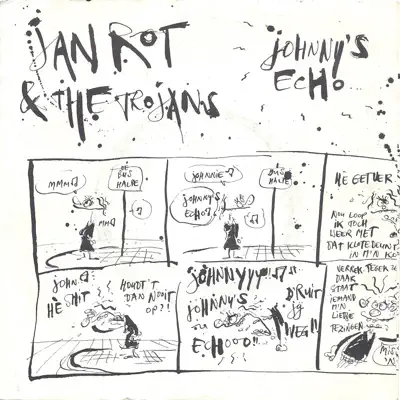 JAN ROT
& THE TROJANS
JOHNNY'S
ECHO
MMM
DE
BUS
HALTE
MM
JOHNNIE
JOHNNY'S
ECHO
BUS
HALTE
HE GETVER
NOU LOOP
IK TOCH
WEER MET
DAT KLOTEDEUNT
IN M'N KO
JOHN
HE SHIT
HOUDT'T
DAN NOOIT
OP?!
JOHNYYY!!
JOHNNY'S
ECHOOO!!
D'RUIT
JIJ
WEG!!
VERREK TEGEK
DAAR
STAAT
IEMAND
M'N
LIEFJE
TEZINGEN
MIS